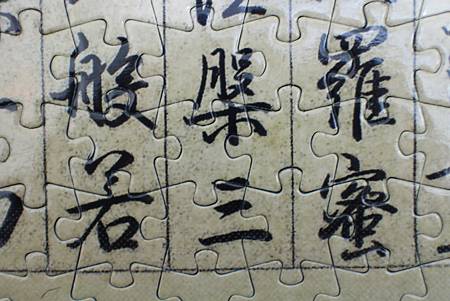 羅蜜
槃三
般若